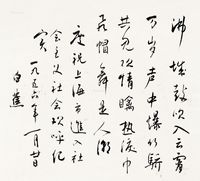 沸城鼓吹入云霄
万岁声中爆竹骄
共见欢情腾热浪巾
飞帽舞是人潮
庆祝上海市进入社
会主义社会欢呼纪
实
一九五六年一月廿日
白蕉